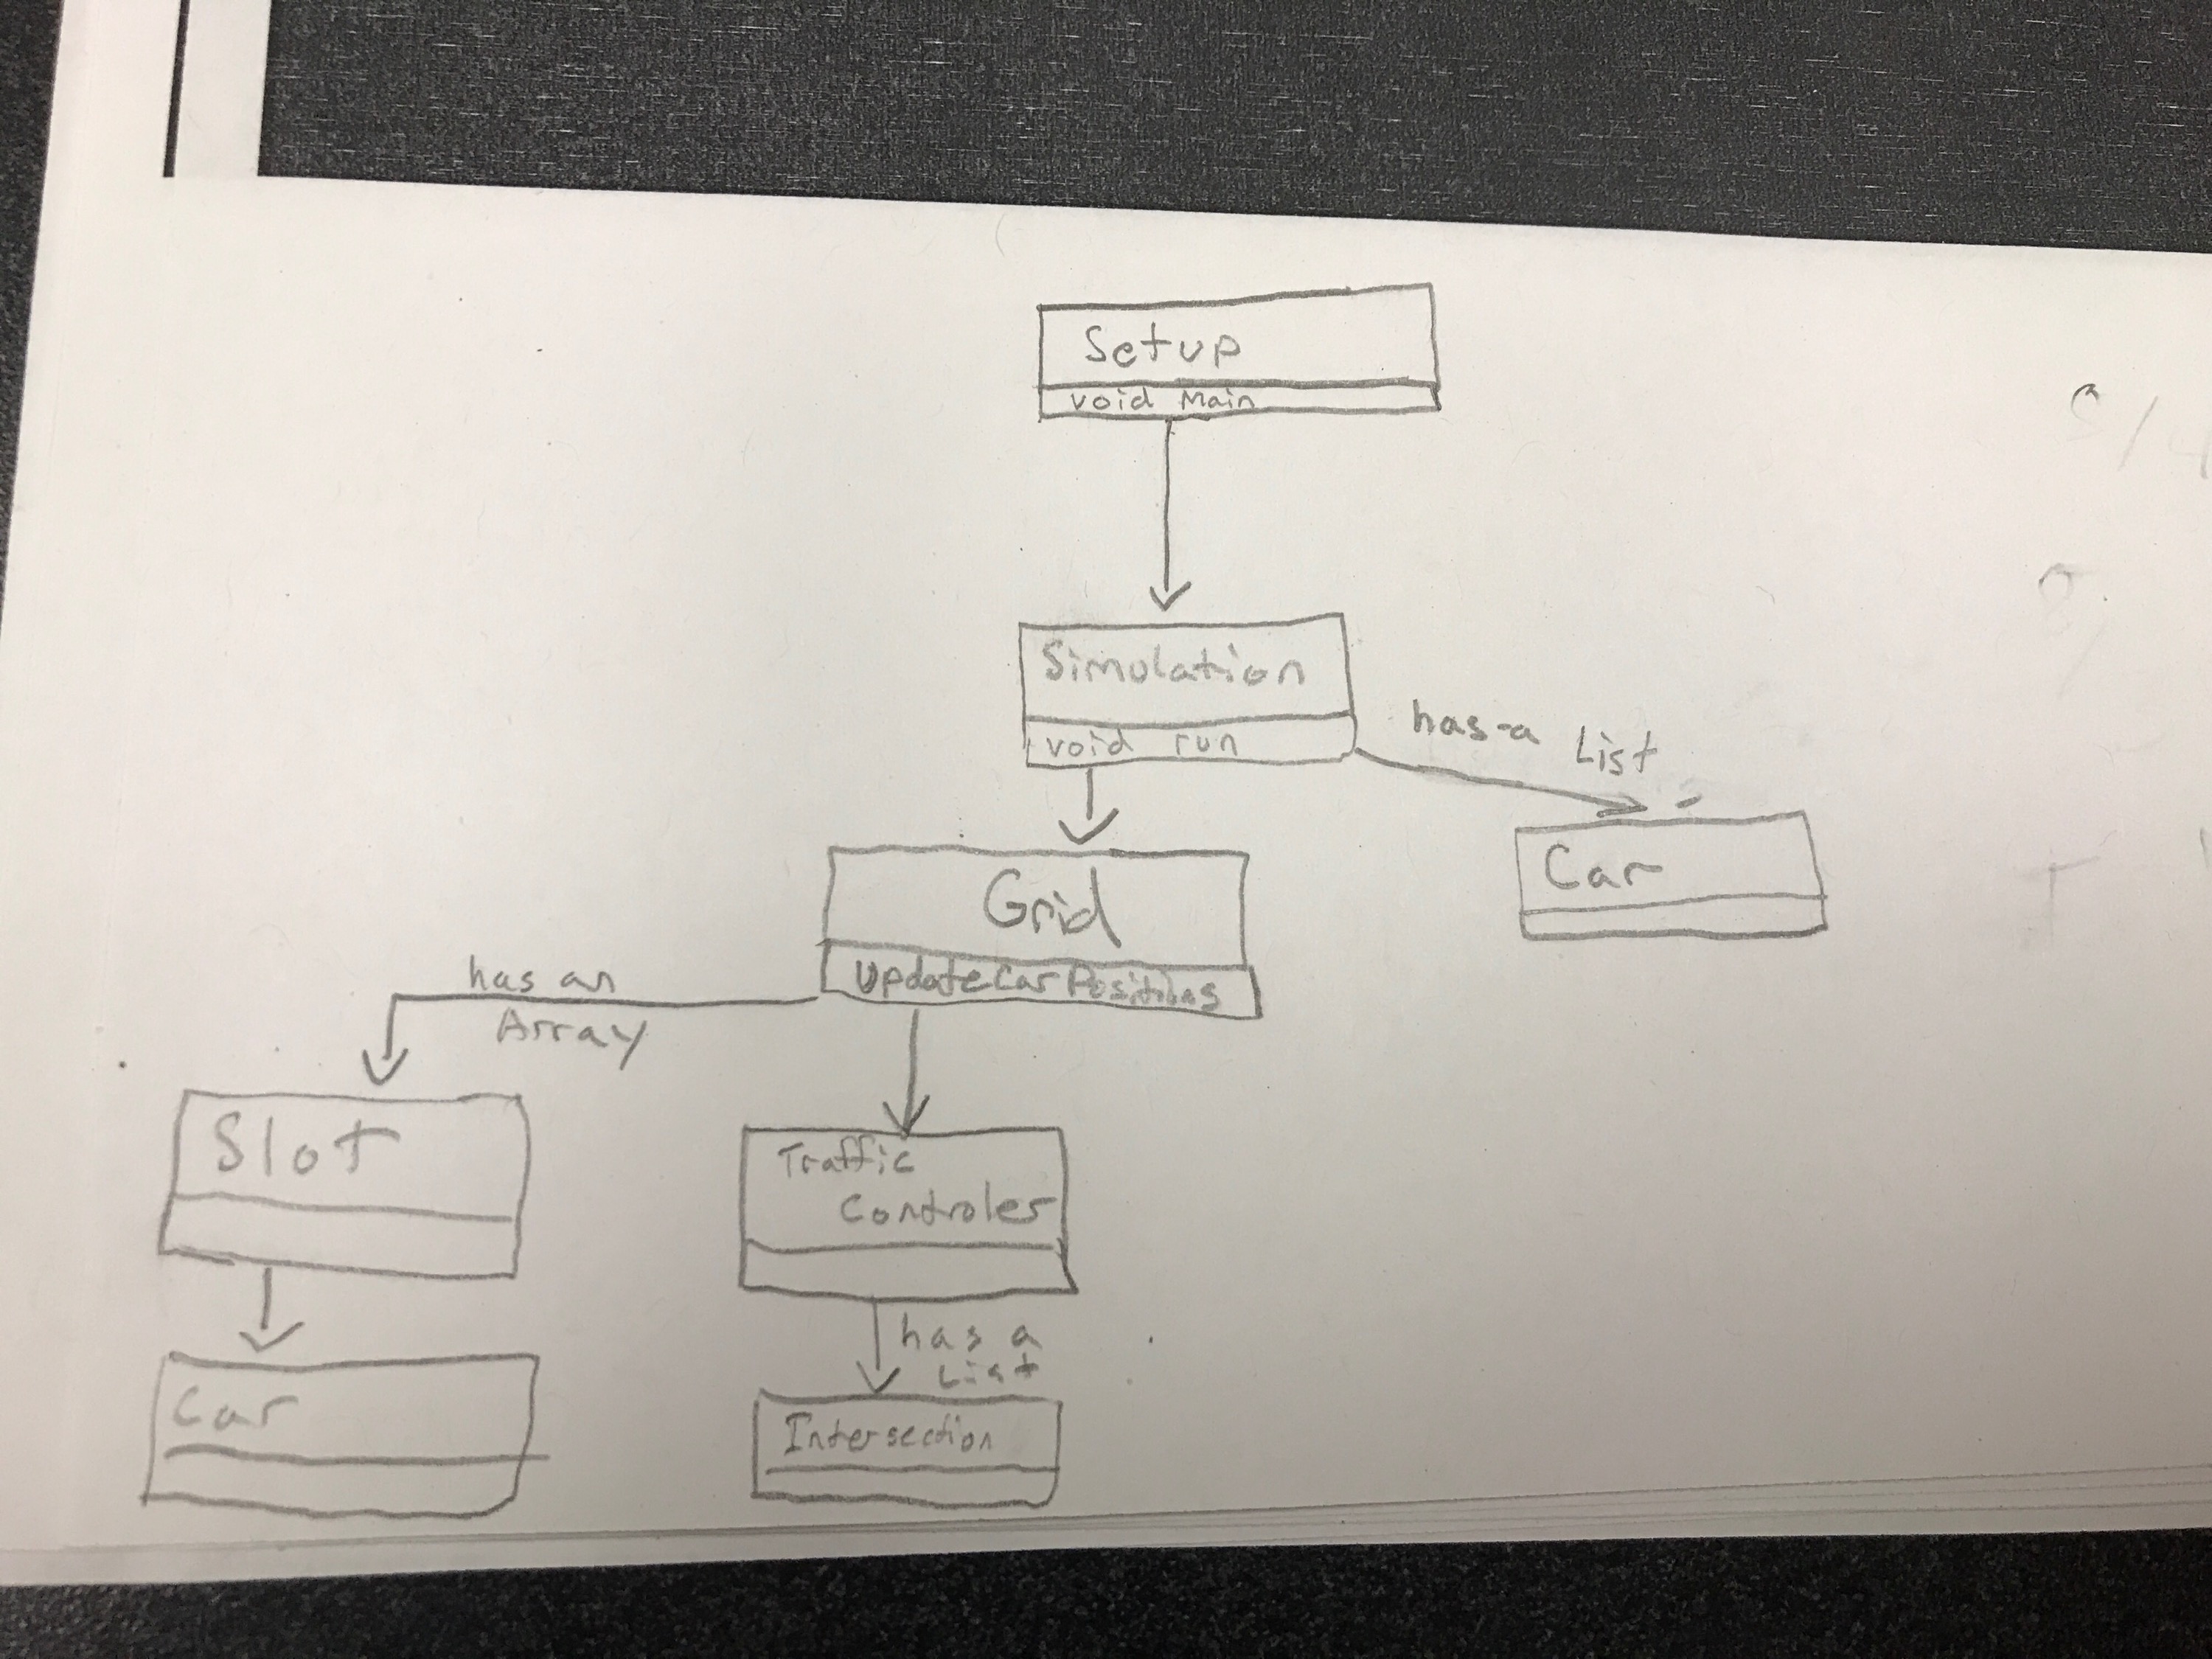 Setup
void Main
Simulation
void run
has-a List
Car
Grid
UpdateCarPositions
has an
Array
Slot
Traffic
Controler
has a
List
Car
Intersection